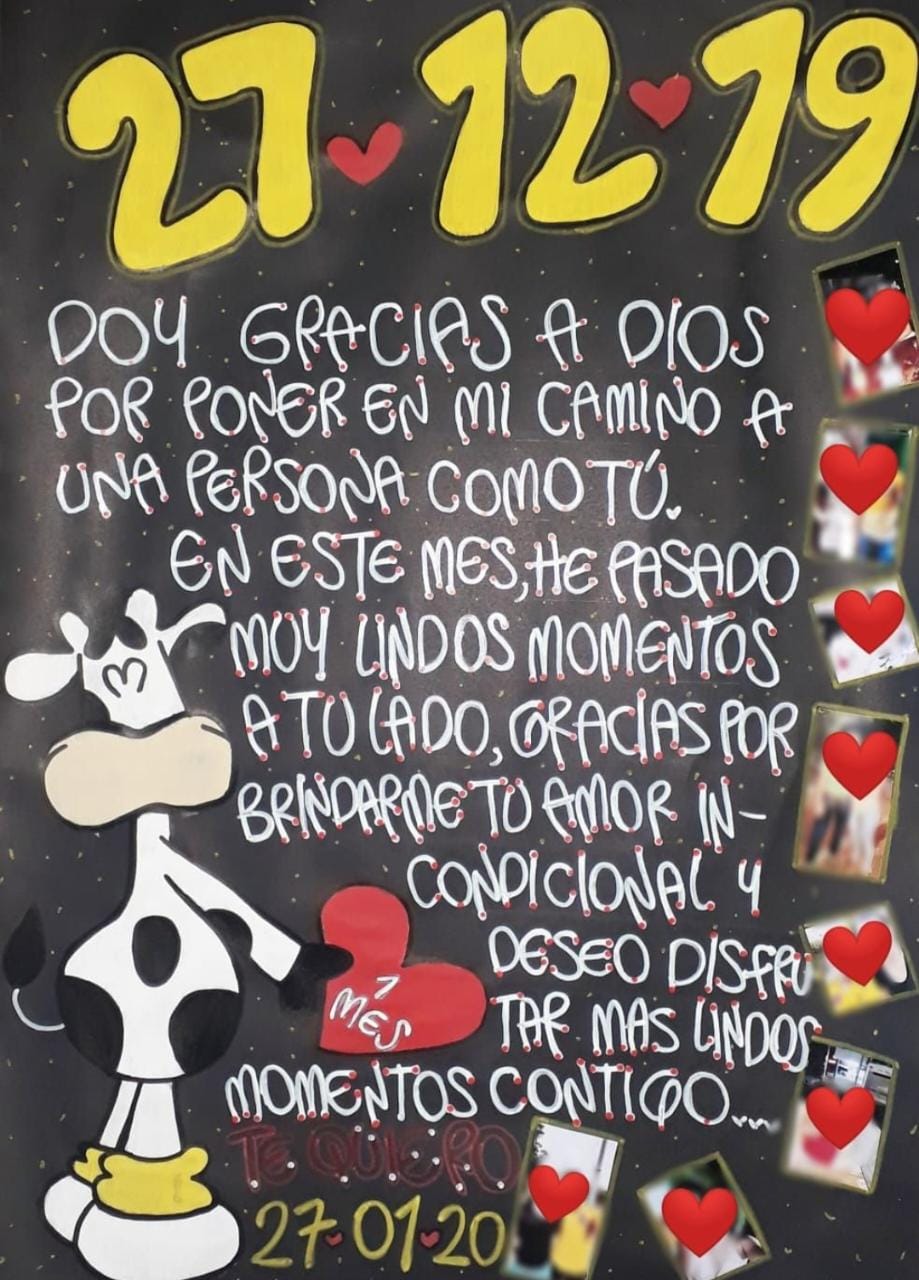 27 12 19
DOY GRACIAS A DIOS
POR PONER EN MI CAMINO A
UNA PERSONA COMO TÚ.
EN ESTE MES, HE PASADO
MUY LINDOS MOMENTOS
A TU LADO, GRACIAS POR
BRINDARME TU AMOR IN-
CONDICIONAL Y
DESEO DISFRU
TAR MAS LINDOS
MOMENTOS CONTIGO...
1
MES
TE QUIERO
27.01.20